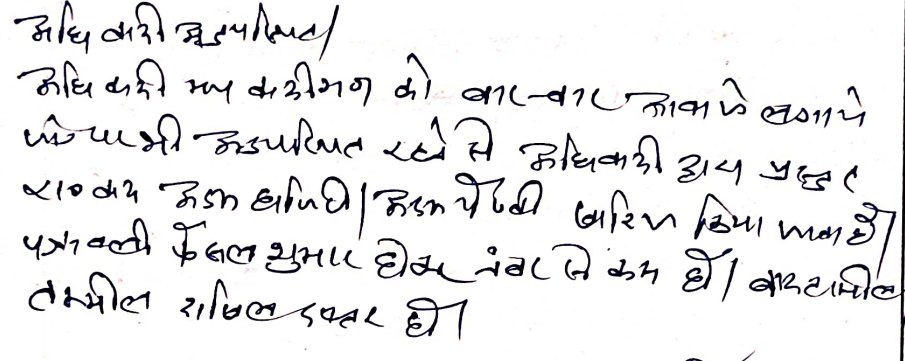 अधिवक्ता अनुपस्थित।
अधिवक्ता मय वादीगण को बार-बार आवाज लगाये
जाने पर भी अनुपस्थित रहने से अधिवक्ता द्वारा प्रस्तुत
अदम पैरवी खारिज किया जाता है।
पत्रावली फैसल शुमार होकर नंबर से कम हो। बाद तामील
तकमील दाखिल दफ्तर हो।